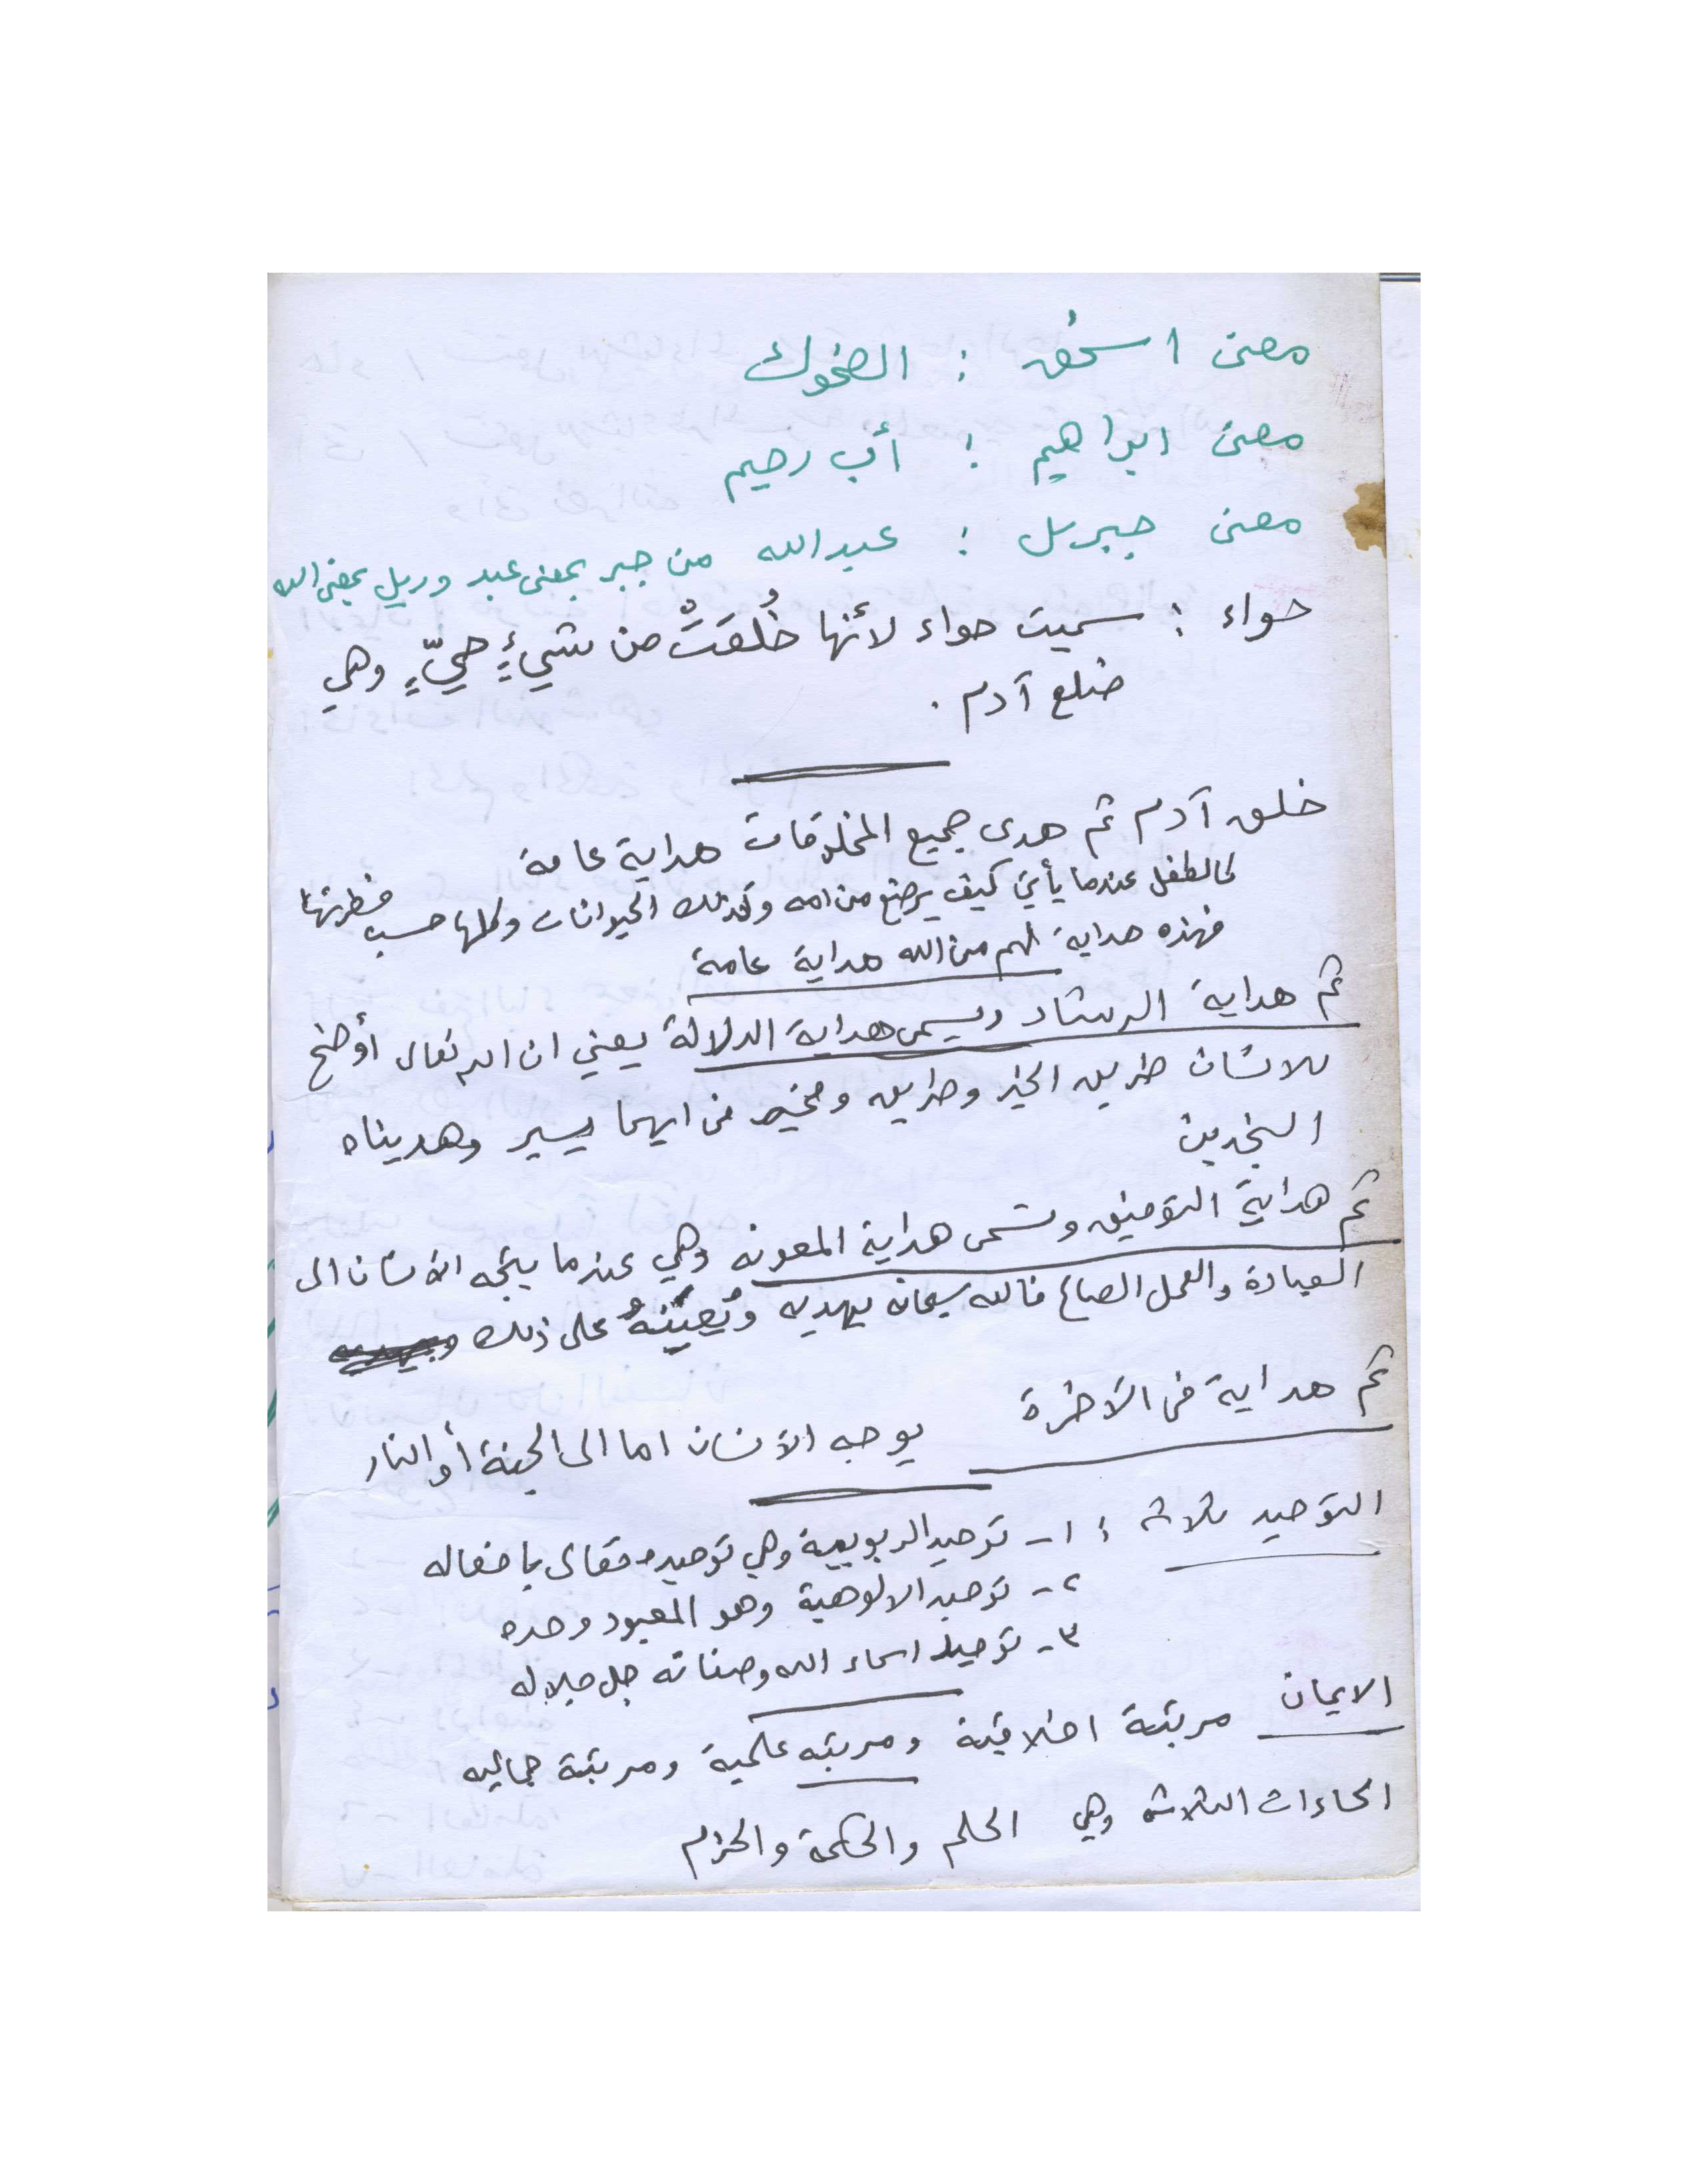 معنى اسحٰق : الضحوك
معنى ابراهيم : أب رحيم
معنى جبريل : عبدالله من جبر بمعنى عبد وريل بمعنى الله
حواء : سميت حواء لأنها خُلقَتْ من شيءٍ حيٍّ وهي
ضلع آدم .
خلق آدم ثم هدى جميع المخلوقات هداية عامة
كالطفل عندما يأتي كيف يرضع من امه وكذلك الحيوانات وكلها حسب فطرتها
فهذه هداية لهم من الله هداية عامة
ثم هداية الرشاد ويسمى هداية الدلالة يعني ان الله تعالى أوضح
للانسان طريق الخير وطريق ومخير من ايهما يسير وهديناه
النجدين
ثم هداية التوفيق وتسمى هداية المعونه وهي عندما يتجه الانسان الى
العبادة والعمل الصالح فالله سبحانه يهديه ويُعِينُهُ على ذلك
ثم هداية فى الآخرة يوجه الانسان اما الى الجنة أو النار
التوحيد ثلاثه : ١- توحيد الربوبية وهي توحيده تعالى بافعاله
٢- توحيد الالوهية وهو المعبود وحده
٣- توحيد اسماء الله وصفاته جل جلاله
الايمان مرتبة اخلاقية ومرتبه علمية ومرتبة جماليه
الحاءات الثلاثه وهي الحلم والحكمة والحزم